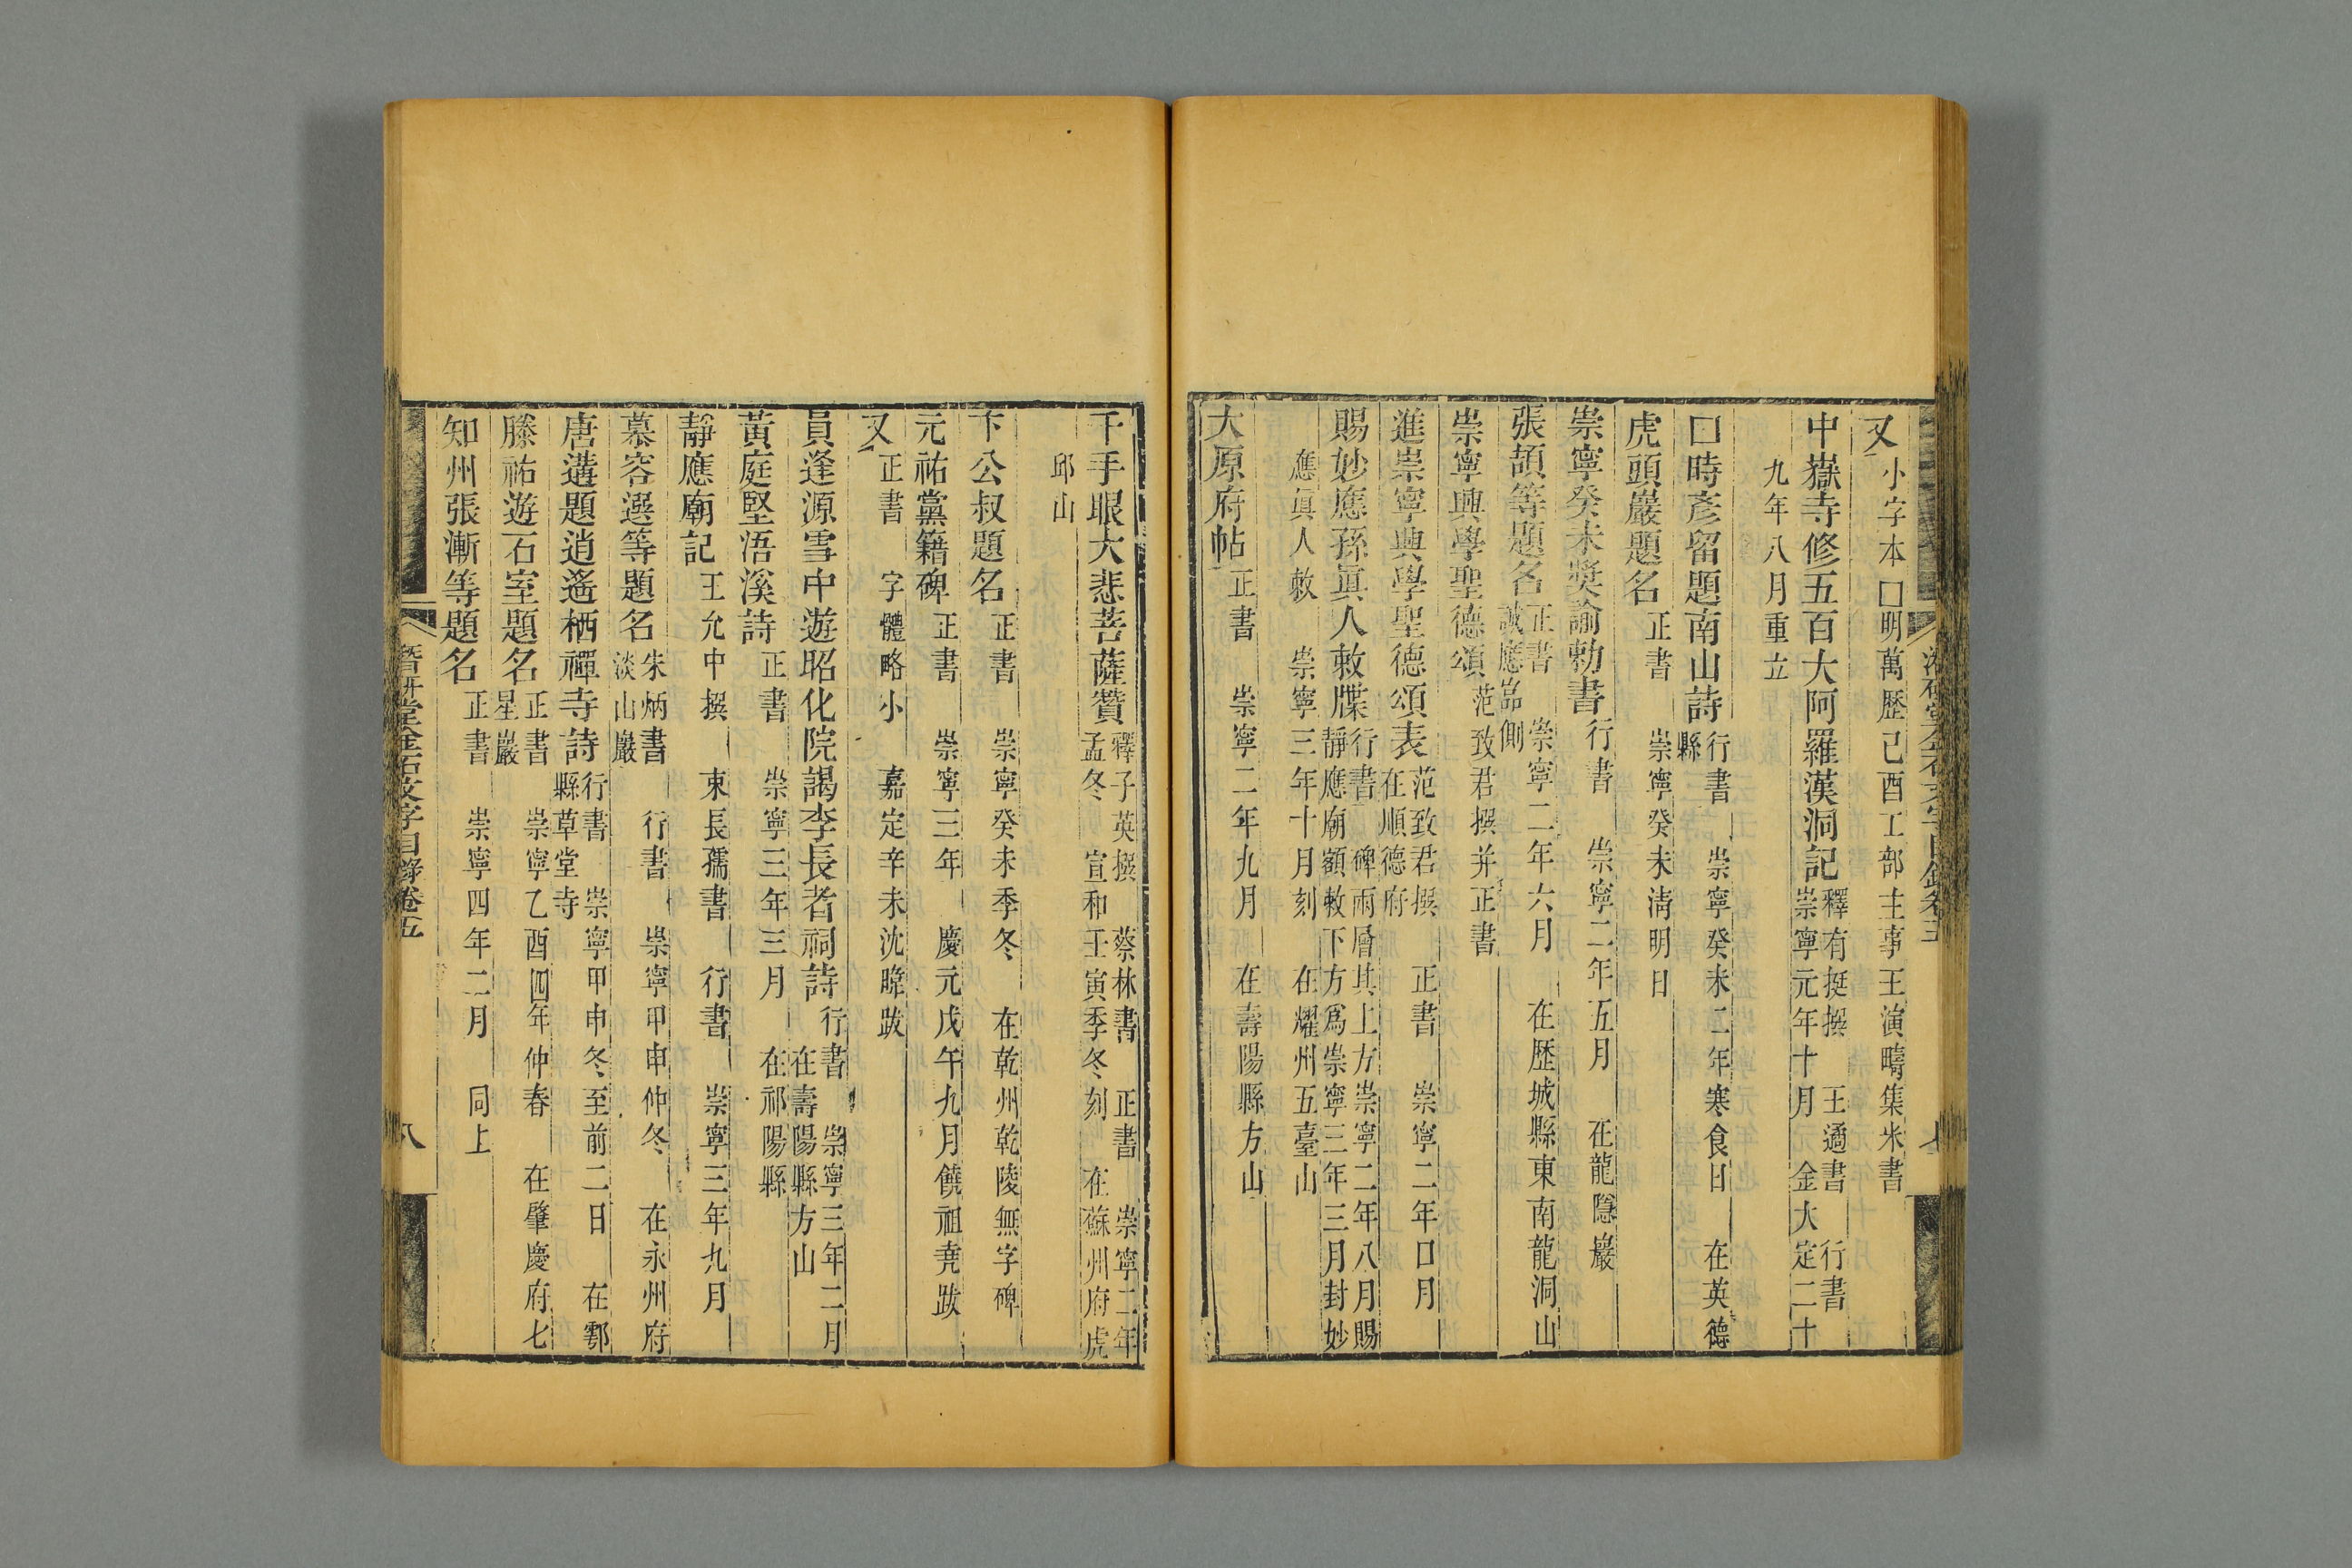 又 小字本 囗明萬歷己酉工部主事王演疇集米書
中嶽寺修五百大阿羅漢洞記 釋有挺撰 王適書 行書
崇寧元年十月 金大定二十
九年八月重立
囗時彥留題南山詩 行書 崇寧癸未二年寒食日 在英德
縣
虎頭巖題名 正書 崇寧癸未清明日
崇寧癸未獎諭勅書 行書 崇寧二年五月 在龍隱巖
張頡等題名 正書 崇寧二年六月 在歷城縣東南龍洞山
誠應嵓側
崇寧興學聖德頌 范致君撰并正書
進崇寧興學聖德頌表 范致君撰 正書 崇寧二年囗月
在順德府
賜妙應孫眞人敕牒 行書 碑兩層其上方崇寧二年八月賜
靜應廟額敕下方爲崇寧三年三月封妙
應眞人敕 崇寧三年十月刻 在耀州五臺山
大原府帖 正書 崇寧二年九月 在壽陽縣方山
千手眼大悲菩薩贊 釋子英撰 蔡林書 正書 崇寧二年
孟冬 宣和壬寅季冬刻 在蘇州府虎
邱山
卞公叔題名 正書 崇寧癸未季冬 在乾州乾陵無字碑
元祐黨籍碑 正書 崇寧三年 慶元戊午九月饒祖堯跋
又 正書 字體略小 嘉定辛未沈暐跋
員逢源雪中遊昭化院謁李長者祠詩 行書 崇寧三年二月
在壽陽縣方山
黃庭堅浯溪詩 正書 崇寧三年三月 在祁陽縣
靜應廟記 王允中撰 束長孺書 行書 崇寧三年九月
慕容選等題名 朱炳書 行書 崇寧甲申仲冬 在永州府
淡山巖
唐遘題逍遙栖禪寺詩 行書 崇寧甲申冬至前二日 在鄠
縣草堂寺
滕祐遊石室題名 正書 崇寧乙酉四年仲春 在肇慶府七
星巖
知州張漸等題名 正書 崇寧四年二月 同上
潛研堂金石文字目錄卷五 八